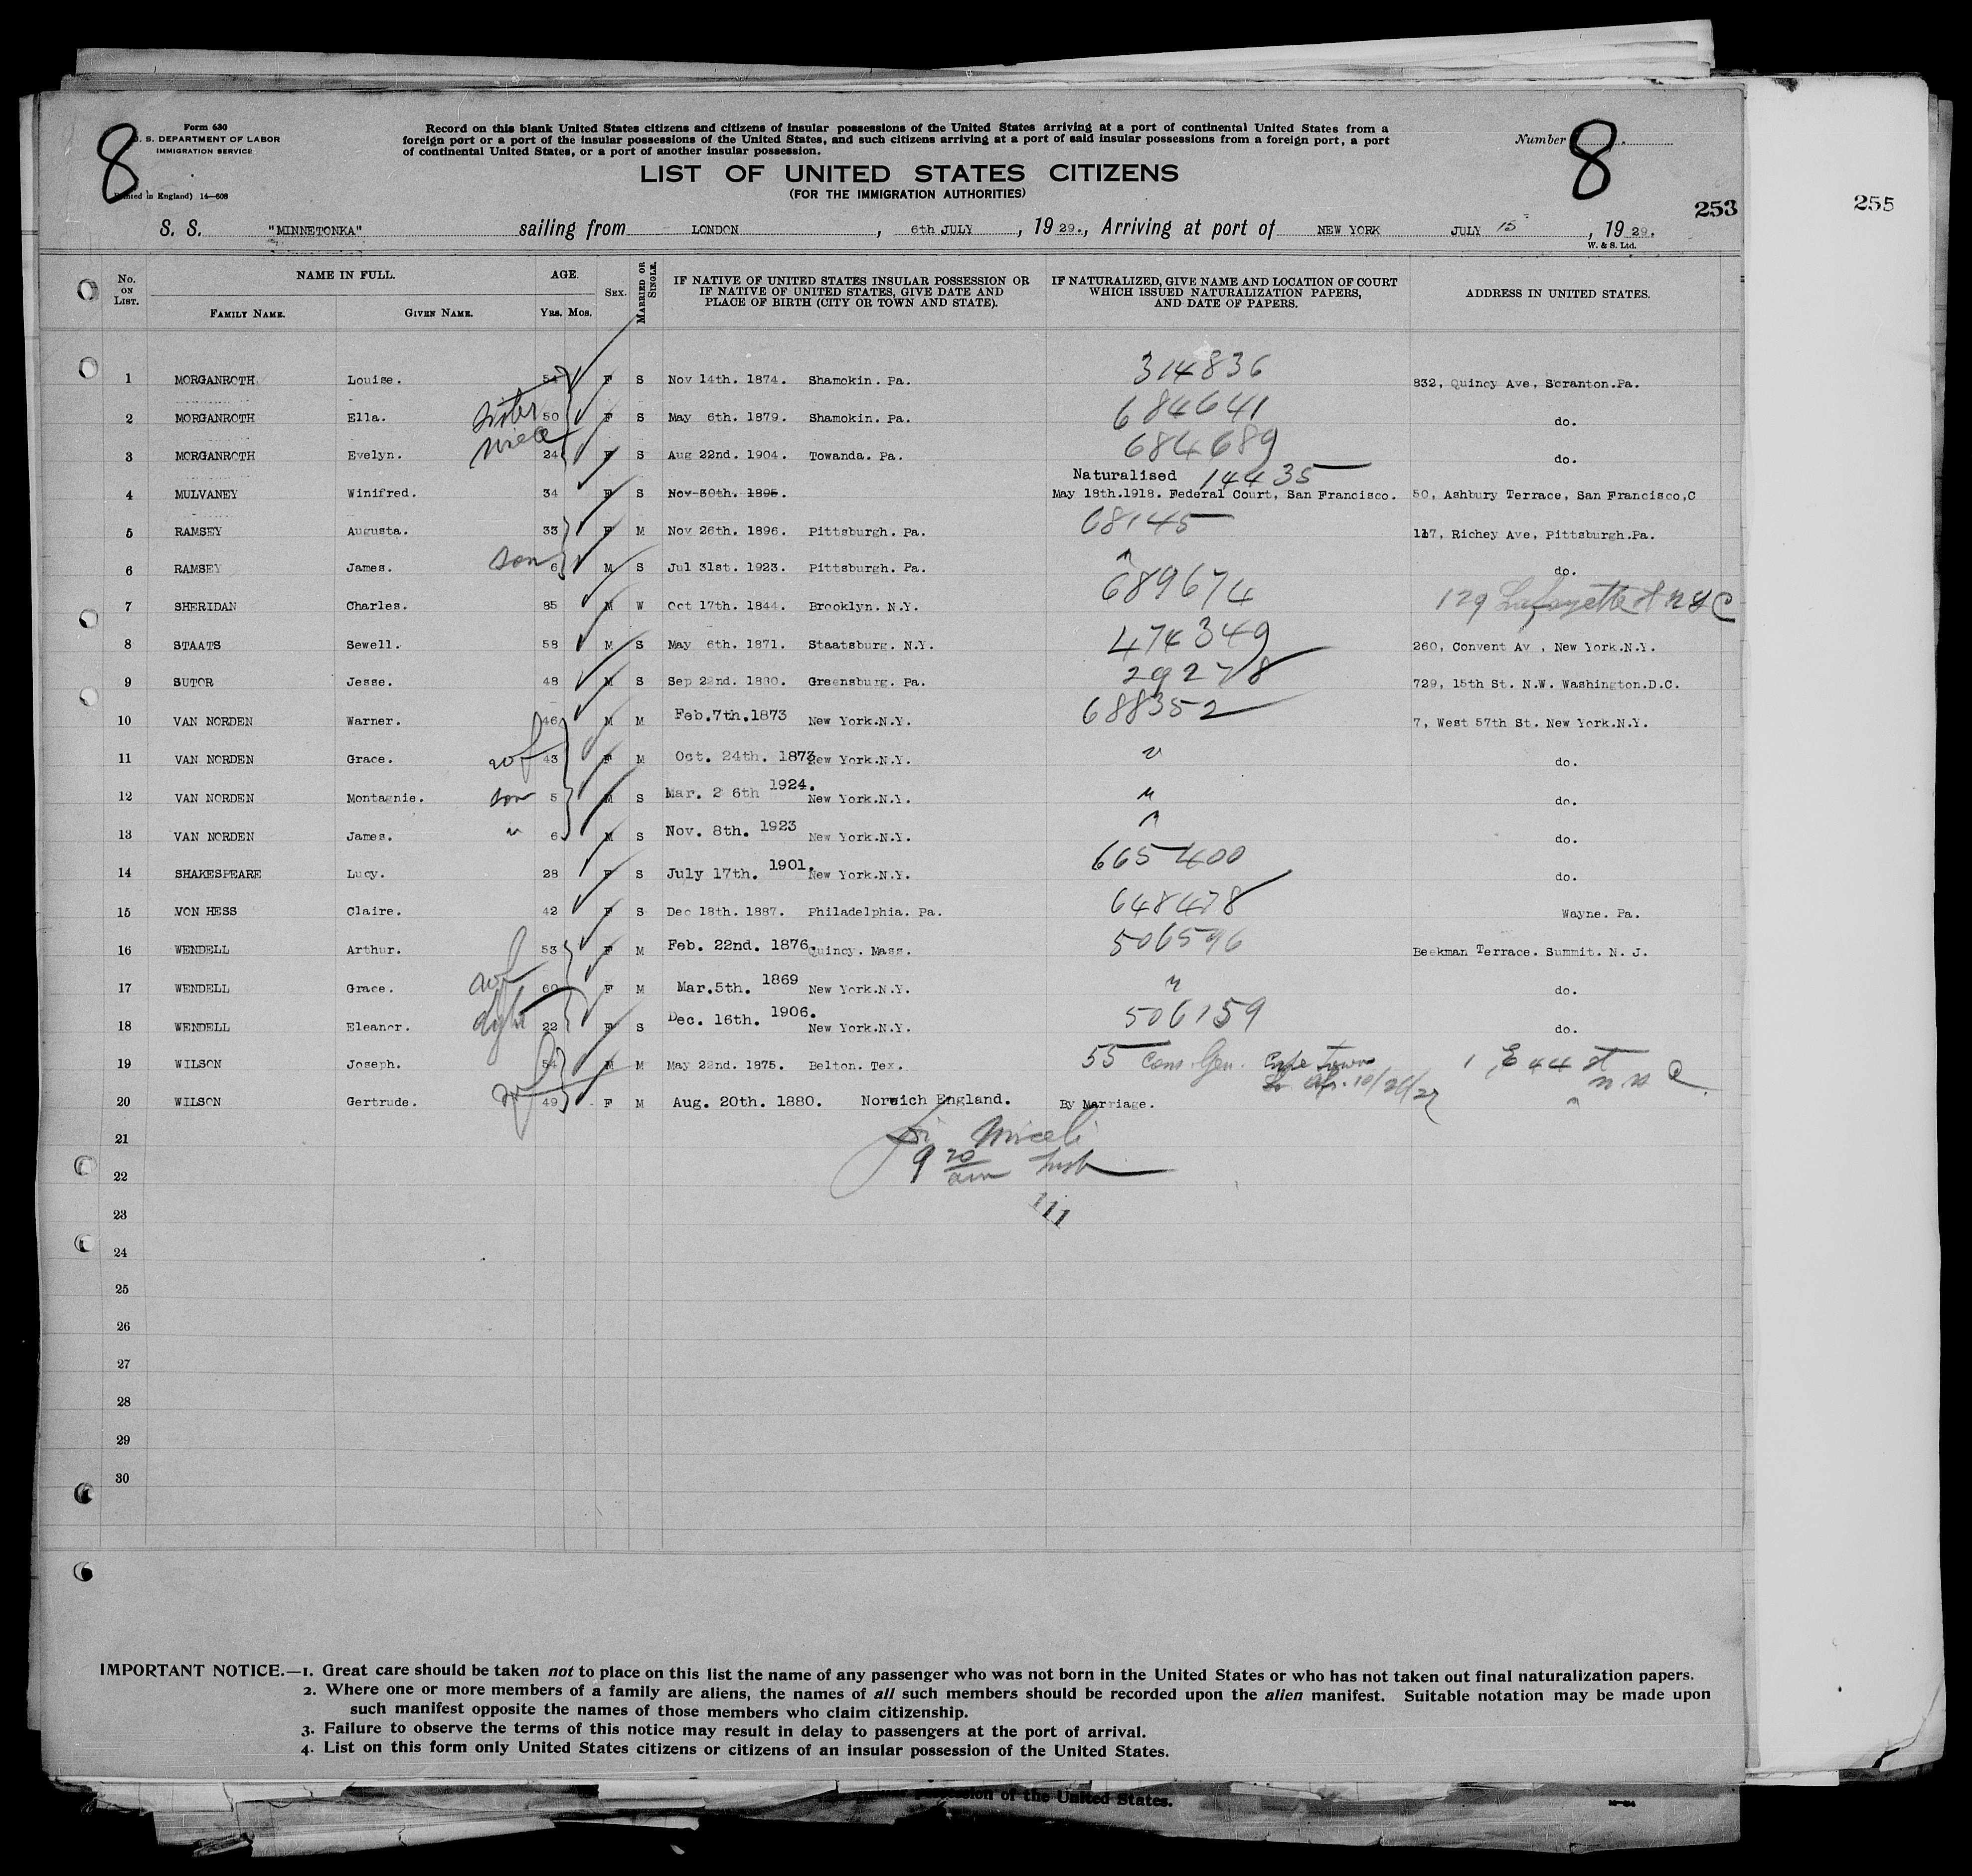 Form 630
U. S. DEPARTMENT OF LABOR
IMMIGRATION SERVICE
(Printed in England) 14—608
8
Record on this blank United States citizens and citizens of insular possessions of the United States arriving at a port of continental United States from a
foreign port or a port of the insular possessions of the United States, and such citizens arriving at a port of said insular possessions from a foreign port, a port
of continental United States, or a port of another insular possession.
LIST OF UNITED STATES CITIZENS
(FOR THE IMMIGRATION AUTHORITIES)
Number 8
253
255
S. S. "MINNETONKA" sailing from LONDON, 6th JULY, 19 29., Arriving at port of NEW YORK JULY 15, 19 29.
W. & S. Ltd.
No. ON LIST. NAME IN FULL. FAMILY NAME. GIVEN NAME. AGE. YRS. MOS. SEX. MARRIED OR SINGLE. IF NATIVE OF UNITED STATES INSULAR POSSESSION OR IF NATIVE OF UNITED STATES, GIVE DATE AND PLACE OF BIRTH (CITY OR TOWN AND STATE). IF NATURALIZED, GIVE NAME AND LOCATION OF COURT WHICH ISSUED NATURALIZATION PAPERS, AND DATE OF PAPERS. ADDRESS IN UNITED STATES.
1 MORGANROTH Louise. 54 F S Nov 14th. 1874. Shamokin. Pa. 314836 832, Quincy Ave, Scranton.Pa.
2 MORGANROTH Ella. sister 50 F S May 6th. 1879. Shamokin. Pa. 684641 do.
3 MORGANROTH Evelyn. niece 24 F S Aug 22nd. 1904. Towanda. Pa. 684689 do.
Naturalised 14435
4 MULVANEY Winifred. 34 F S Nov 30th. 1895. May 18th.1918. Federal Court, San Francisco. 50, Ashbury Terrace, San Francisco,C
5 RAMSEY Augusta. 33 F M Nov 26th. 1896. Pittsburgh. Pa. 68145 117, Richey Ave, Pittsburgh.Pa.
6 RAMSEY James. son 6 M S Jul 31st. 1923. Pittsburgh. Pa. " do.
7 SHERIDAN Charles. 85 M W Oct 17th. 1844. Brooklyn. N.Y. 689674 129 Lafayette St N Y C
8 STAATS Sewell. 58 M S May 6th. 1871. Staatsburg. N.Y. 474349 260, Convent Av , New York.N.Y.
9 SUTOR Jesse. 48 M S Sep 22nd. 1880. Greensburg. Pa. 29278 729, 15th St. N.W. Washington.D.C.
10 VAN NORDEN Warner. 46 M M Feb.7th.1873 New York.N.Y. 688352 7, West 57th St. New York.N.Y.
11 VAN NORDEN Grace. wf 43 F M Oct. 24th. 1873 New York.N.Y. " do.
12 VAN NORDEN Montagnie. son 5 M S Mar. 26th 1924. New York.N.Y. " do.
13 VAN NORDEN James. " 6 M S Nov. 8th. 1923 New York.N.Y. " do.
14 SHAKESPEARE Lucy. 28 F S July 17th. 1901. New York.N.Y. 665400 do.
15 VON HESS Claire. 42 F S Dec 18th. 1887. Philadelphia. Pa. 648478 Wayne. Pa.
16 WENDELL Arthur. 53 F M Feb. 22nd. 1876. Quincy. Mass. 506596 Beekman Terrace. Summit. N. J.
17 WENDELL Grace. wf 60 F M Mar.5th. 1869 New York.N.Y. " do.
18 WENDELL Eleanor. dght 22 F S Dec. 16th. 1906. New York.N.Y. 506159 do.
19 WILSON Joseph. 54 M M May 22nd. 1875. Belton. Tex. 55 Cons. Gen. Cape Town So. Afr. 10/26/27 1, E 44 St N Y C
20 WILSON Gertrude. wf 49 F M Aug. 20th. 1880. Norwich England. By Marriage. "
21
22 9 20 am
23
24
25
26
27
28
29
30
IMPORTANT NOTICE.—1. Great care should be taken not to place on this list the name of any passenger who was not born in the United States or who has not taken out final naturalization papers.
2. Where one or more members of a family are aliens, the names of all such members should be recorded upon the alien manifest. Suitable notation may be made upon
such manifest opposite the names of those members who claim citizenship.
3. Failure to observe the terms of this notice may result in delay to passengers at the port of arrival.
4. List on this form only United States citizens or citizens of an insular possession of the United States.
of the United States.